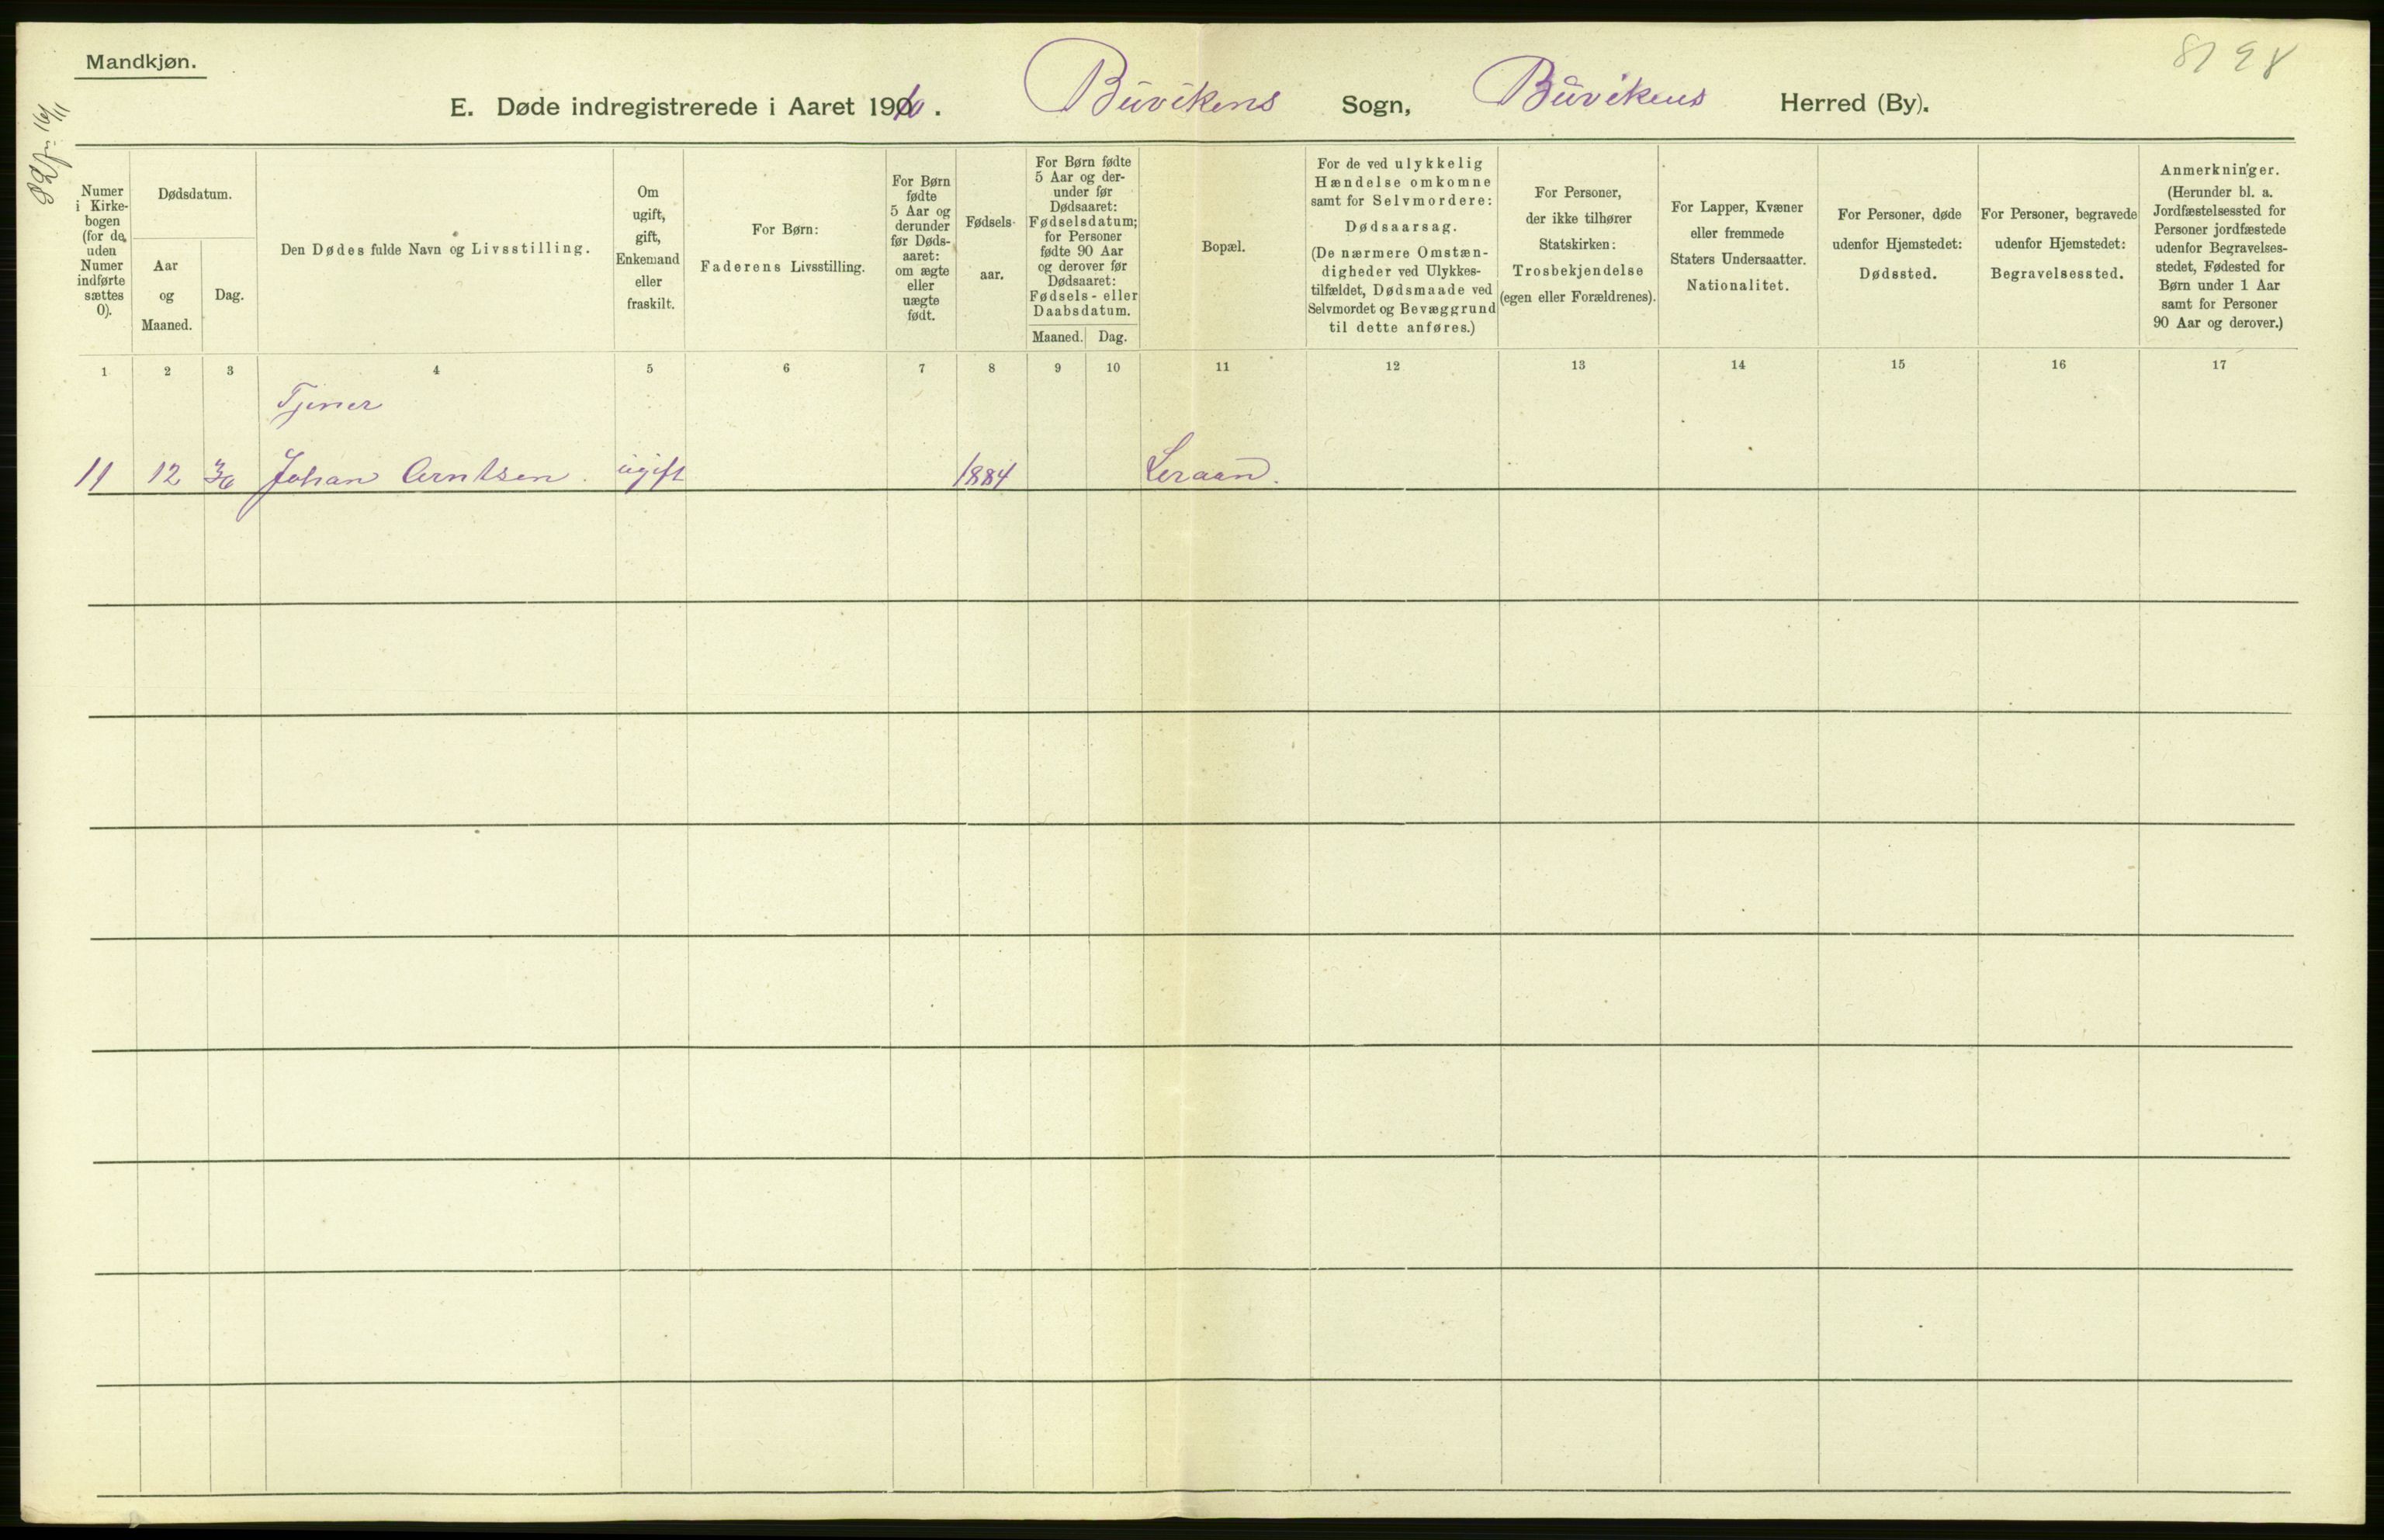 Mandkjøn.
E. Døde indregistrerede i Aaret 1910. Buvikens Sogn, Buvikens Herred (By).
Numer i Kirke-bogen (for de uden Numer indførte sættes 0).
Dødsdatum.
Aar og Maaned.
Dag.
Den Dødes fulde Navn og Livsstilling.
Om ugift, gift, Enkemand eller fraskilt.
For Børn: Faderens Livsstilling.
For Børn fødte 5 Aar og derunder før Døds-aaret: om ægte eller uægte født.
Fødsels-aar.
For Børn fødte 5 Aar og der-under før Dødsaaret: Fødselsdatum; for Personer fødte 90 Aar og derover før Dødsaaret: Fødsels- eller Daabsdatum.
Maaned. Dag.
Bopæl.
For de ved ulykkelig Hændelse omkomne samt for Selvmordere: Dødsaarsag. (De nærmere Omstæn-digheder ved Ulykkes-tilfældet, Dødsmaade ved Selvmordet og Bevæggrund til dette anføres.)
For Personer, der ikke tilhører Statskirken: Trosbekjendelse (egen eller Forældrenes).
For Lapper, Kvæner eller fremmede Staters Undersaatter. Nationalitet.
For Personer, døde udenfor Hjemstedet: Dødssted.
For Personer, begravede udenfor Hjemstedet: Begravelsessted.
Anmerkninger. (Herunder bl. a. Jordfæstelsessted for Personer jordfæstede udenfor Begravelses-stedet, Fødested for Børn under 1 Aar samt for Personer 90 Aar og derover.)
1 2 3 4 5 6 7 8 9 10 11 12 13 14 15 16 17
Tjener
11 12 30 Johan Arntsen. ugift 1884 Leraan.